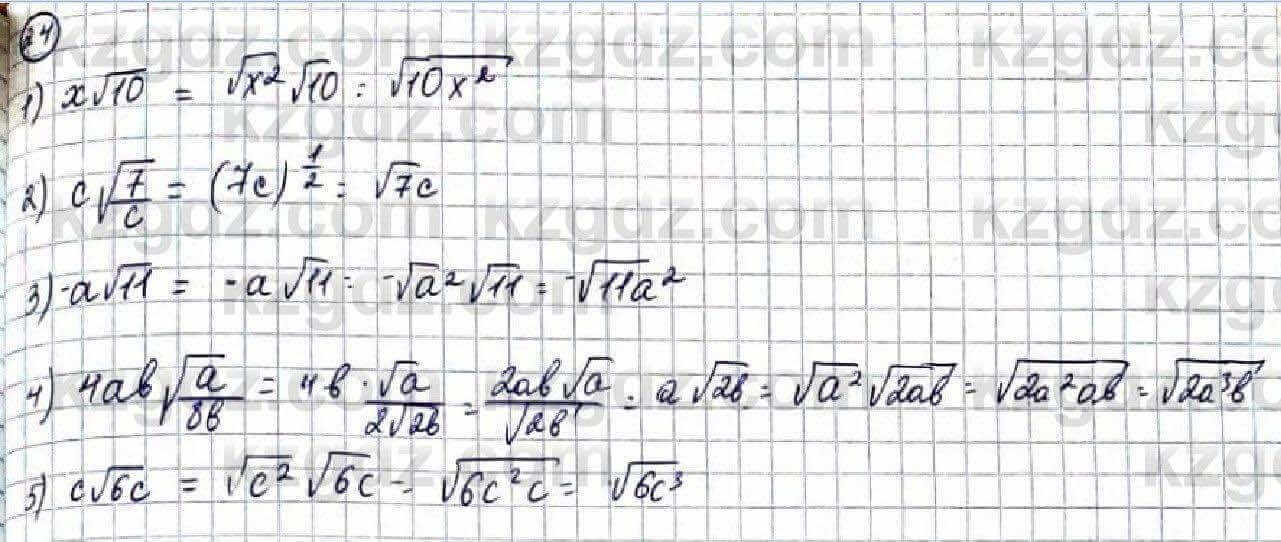 24
1) x√10 = √x² √10 = √10x²
2) c√7/c = (7c)^1/2 = √7c
3) -a√11 = -a√11 = -√a² √11 = -√11a²
4) 4ab√a/8b = 4b · √a/2√2b = 2ab√a/√2b = a√2b = √a² √2ab = √2a²ab = √2a³b
5) c√6c = √c² √6c = √6c²c = √6c³
kzgdz.com